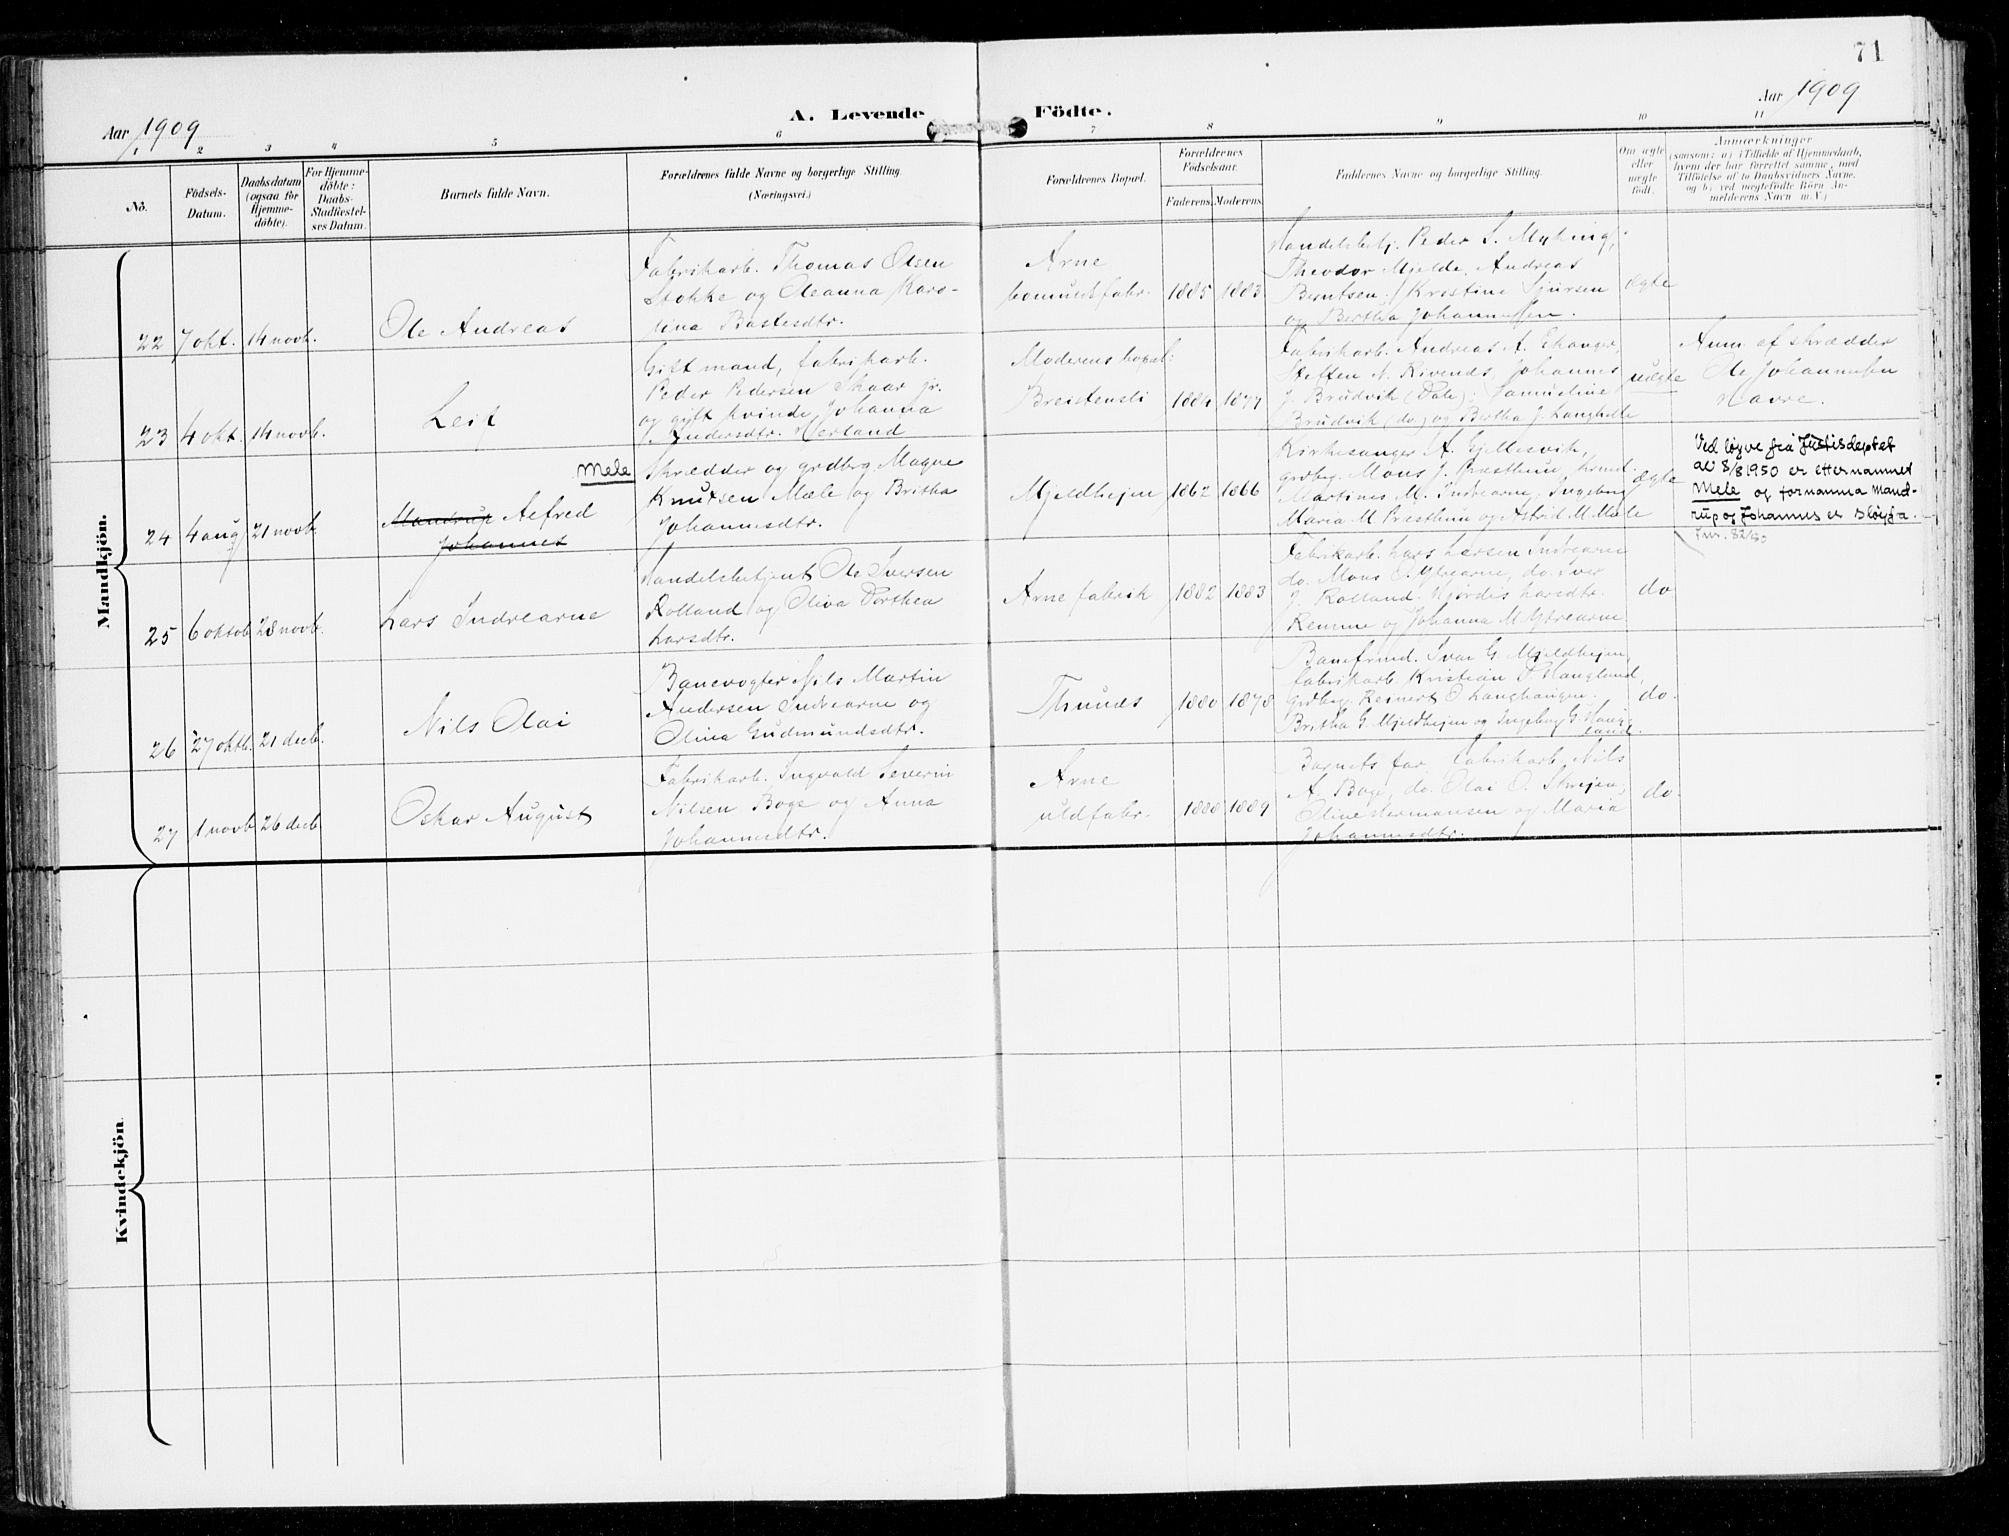 71
Aar 1909
A. Levende Födte.
Aar 1909
1 2 3 4 5 6 7 8 9 10 11
No.
Födsels-Datum.
Daabsdatum (ogsaa for Hjemme-döbte).
For Hjemme-döbte: Daabs-Stadfæstel-ses Datum.
Barnets fulde Navn.
Forældrenes fulde Navne og borgerlige Stilling. (Næringsvei.)
Forældrenes Bopæl.
Forældrenes Födselsaar.
Faderens. Moderens.
Faddernes Navne og borgerlige Stilling.
Om ægte eller uægte födt.
Anmærkninger
(saasom: a) i Tilfælde af Hjemmedaab,
hvem der har forrettet samme, med
Tilföielse af to Daabsvidners Navne.
og b) ved uægtefödte Börn An-
melderens Navn m.V.)
Mandkjön.
22 7 okt. 14 novb.
Ole Andreas
Fabrikarb. Thomas Olsen
Stokke og Oleanna Karo-
lina Bastesdtr.
Arne
bomuldsfabr.
1885 1883
Handelsbetj. Peder S. Myking,
Theodor Mjelde, Andreas
Berntsen, Kristine Sjursen
og Bertha Johannessen.
ægte
23 4 okt. 14 novb.
Leif
Gift mand, fabrikarb.
Peder Pedersen Skaar jr.
og gift kvinde Johanna
Andersdtr. Herland
Moderens bopæl:
Breistensli
1884 1877
Fabrikarb. Andreas A. Ekanger,
Steffen N. Rivenes, Johannes
J. Brudvik (Dale); Samueline
Brudvik (do) og Bertha J. Langhelle
uægte
Anm. af skrædder
Ole Johannesen
Havre.
24 4 aug 21 novb.
Mele
Mandrup Alfred
Johannes
Skrædder og grdbrg Magne
Knutsen Mæle og Britha
Johannesdtr.
Mjeldhejen
1862 1866
Kirkesanger A. Gjellesvik,
grdbrg. Mons J. Præsthun,
Martines M. Indrearne, Ingeborg
Maria M. Præsthun og Astrid M. Mæle
ægte
Ved løyve frå Justisdeptet
av 8/8 1950 er etternamnet
Mele og fornamna Mand-
rup og Johannes er sløyfa.
Jnr. 82/50
25 6 oktob 28 novb.
Lars Indrearne
Handelsbetjent Ole Iversen
Rolland og Oliva Dorthea
Larsdtr.
Arne fabrik
1882 1883
Fabrikarb. Lars Larsen Indrearne
do. Mons O. Ytrearne, do. Iver
J. Rolland. Hjørdis Larsdtr.
Remme og Johanna M. Ytrearne
do
26 27 oktb. 21 decb.
Nils Olai
Banevogter Nils Martin
Andersen Indrearne og
Olina Gudmundsdtr.
Thunes
1880 1878
Baneformd. Ivar G. Mjeldhejen,
fabrikarb. Kristian P. Hauglund,
Grdbrg. Reinert O. Langhaugen.
Britha G. Mjeldhejen og Ingeborg G. Haug-
land.
do.
27 1 novb 26 decb
Oskar August
Fabrikarb. Ingvald Severin
Nilsen Boge og Anna
Johannesdtr.
Arne
uldfabr.
1888 1889
Barnets far, Fabrikarb. Nils
A. Boge, do. Olai O. Skrejen,
Oline Hermansen og Maria
Johannesdtr.
do.
Kvindekjön.